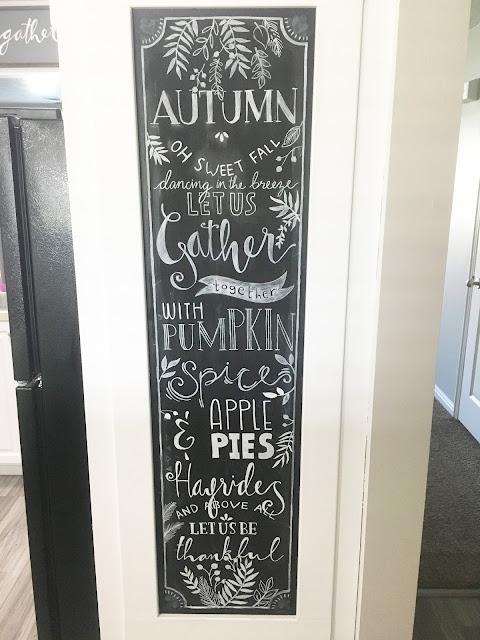 gather
AUTUMN
OH SWEET FALL
dancing in the breeze
LET US
Gather
together
WITH
PUMPKIN
Spice
APPLE
& PIES
Hayrides
AND ABOVE ALL
LET US BE
thankful